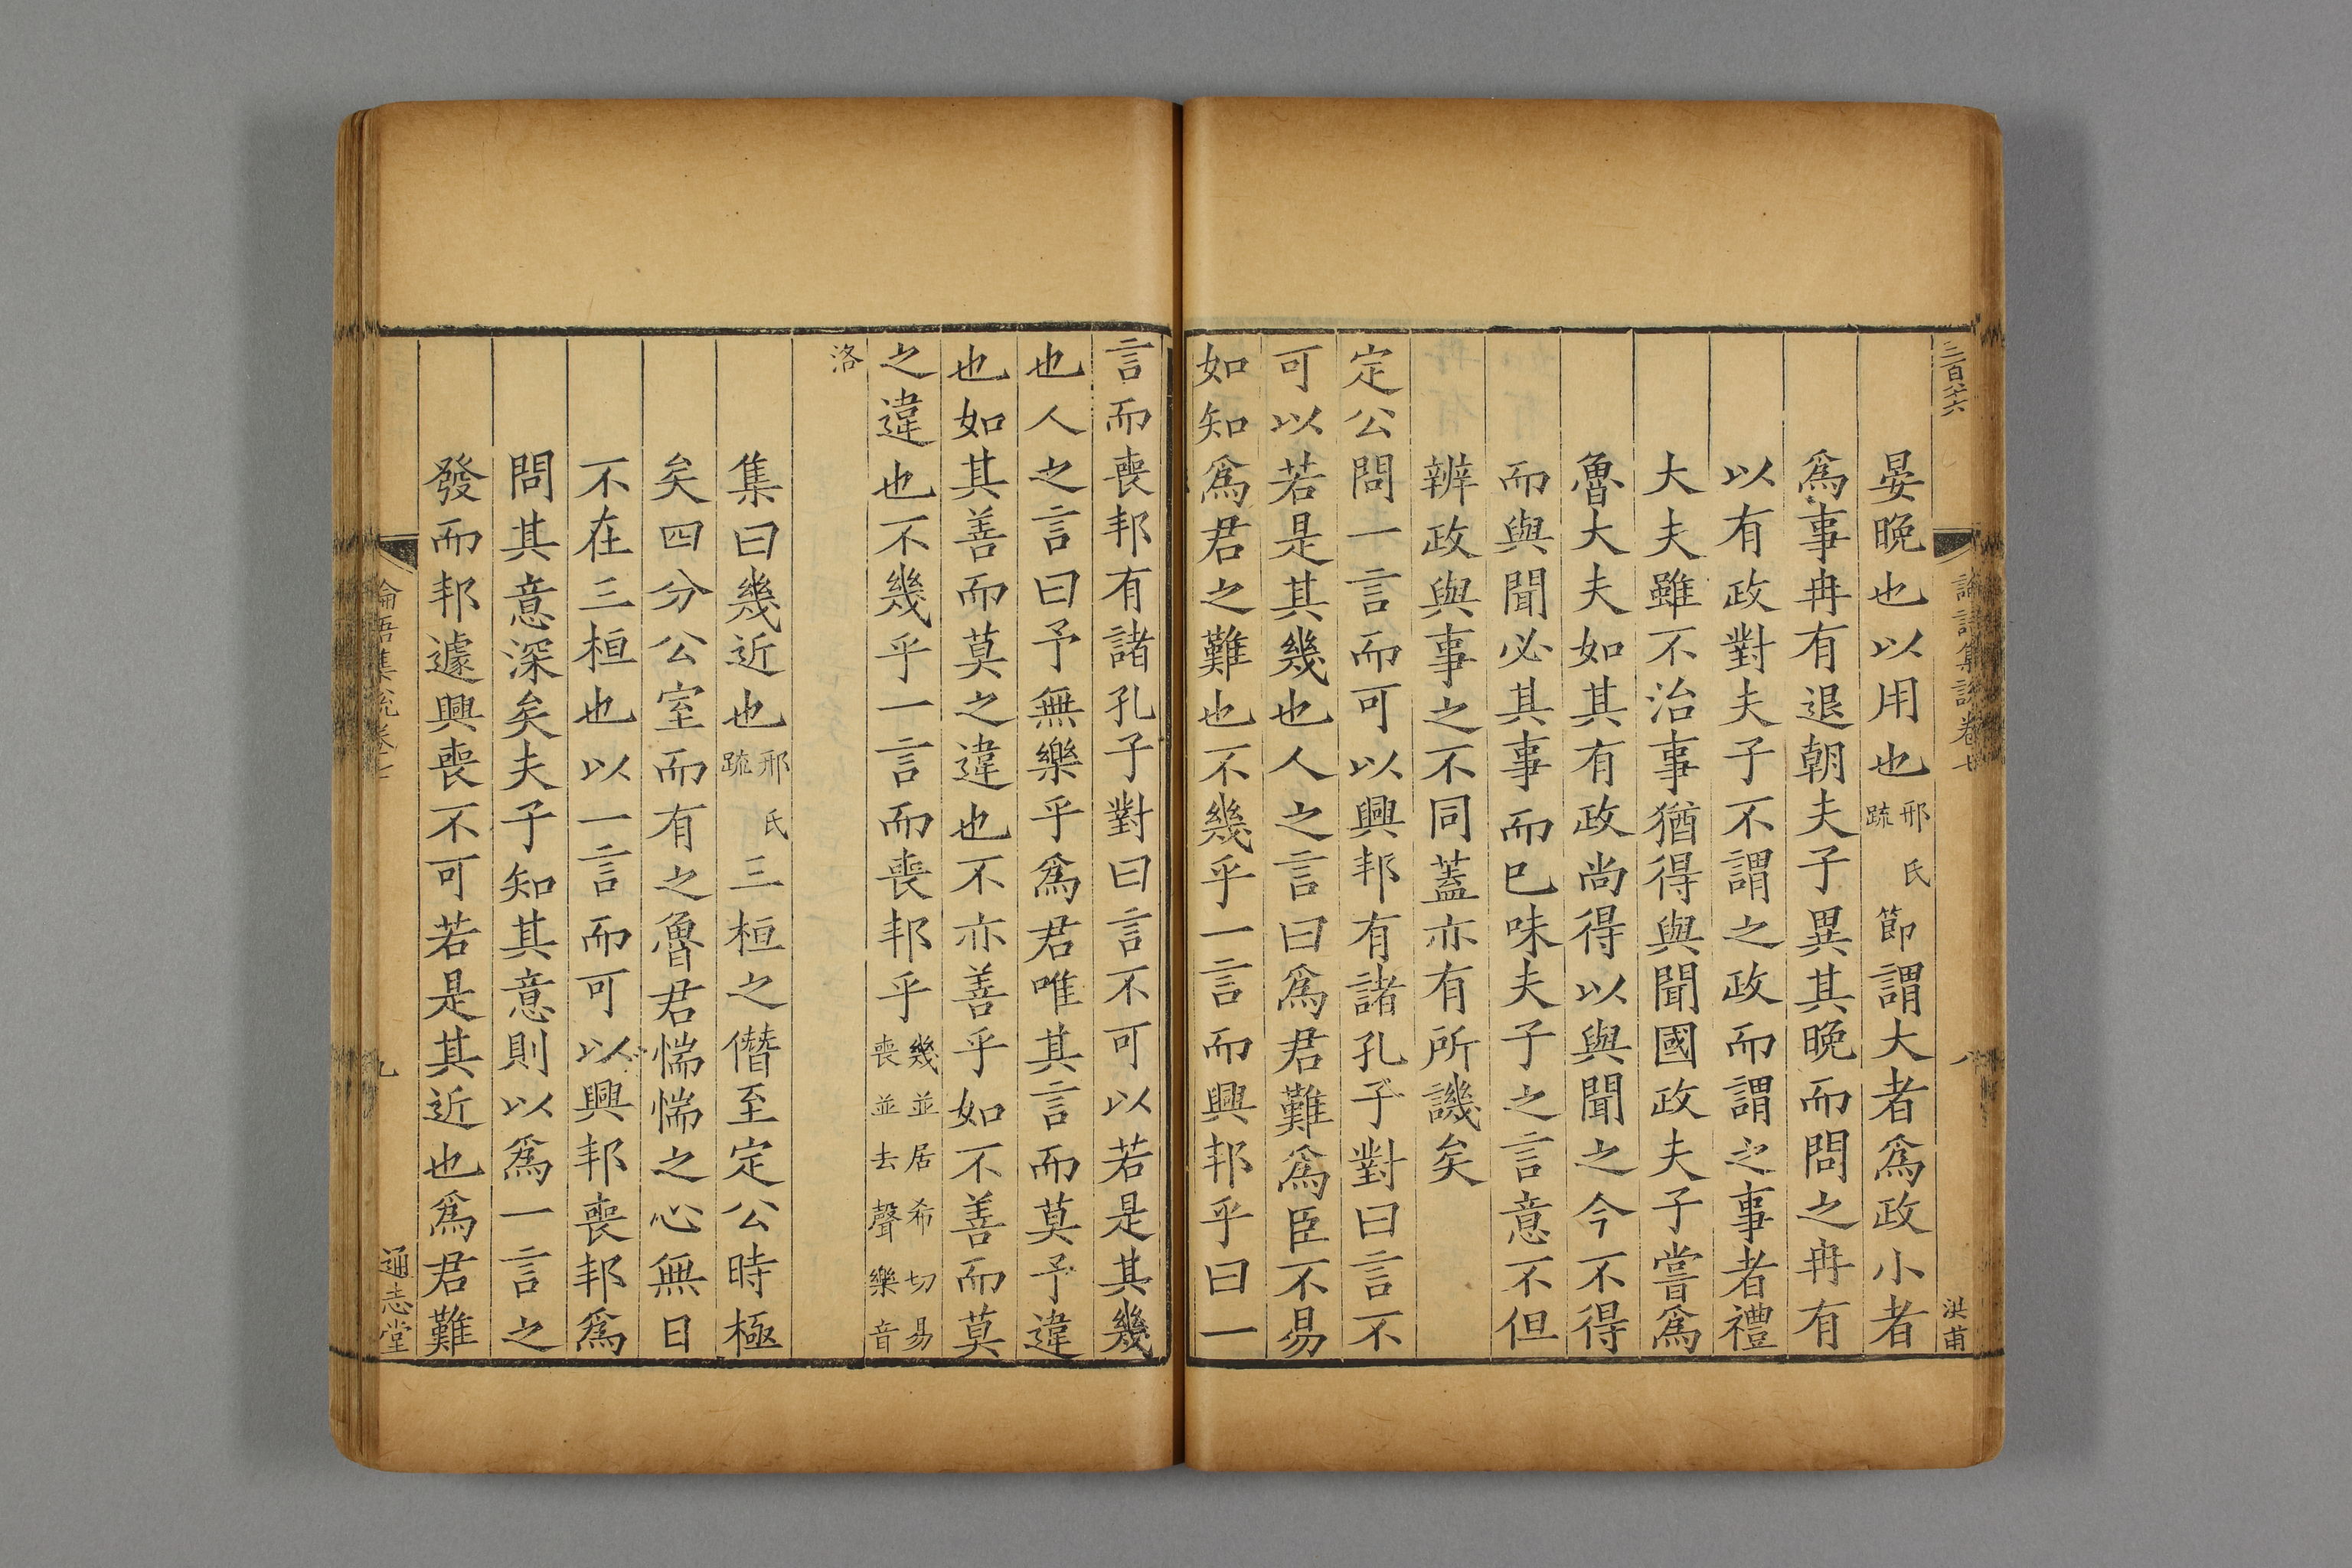 三百八十六
論語集說卷七
八
洪甫
晏晚也以用也邢氏疏節謂大者爲政小者
爲事冉有退朝夫子異其晚而問之冉有
以有政對夫子不謂之政而謂之事者禮
大夫雖不治事猶得與聞國政夫子嘗爲
魯大夫如其有政尚得以與聞之今不得
而與聞必其事而已味夫子之言意不但
辨政與事之不同蓋亦有所譏矣
定公問一言而可以興邦有諸孔子對曰言不
可以若是其幾也人之言曰爲君難爲臣不易
如知爲君之難也不幾乎一言而興邦乎曰一
言而喪邦有諸孔子對曰言不可以若是其幾
也人之言曰予無樂乎爲君唯其言而莫予違
也如其善而莫之違也不亦善乎如不善而莫
之違也不幾乎一言而喪邦乎幾並居希切易喪並去聲樂音
洛
集曰幾近也邢氏疏三桓之僭至定公時極
矣四分公室而有之魯君惴惴之心無日
不在三桓也以一言而可以興邦喪邦爲
問其意深矣夫子知其意則以爲一言之
發而邦遽興喪不可若是其近也爲君難
論語集說卷七
九
通志堂